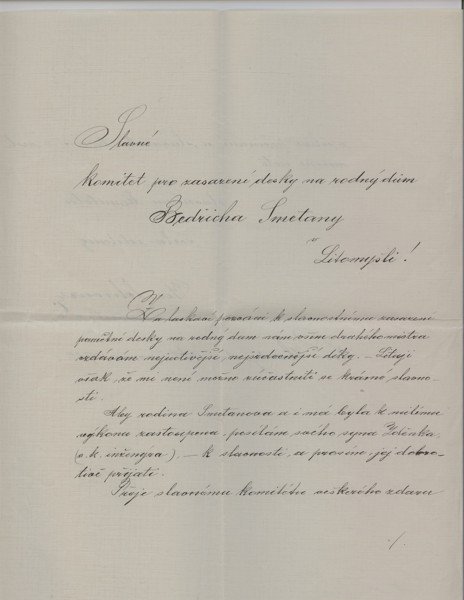 Slavné
komitét pro zasazení desky na rodný dům
Bedřicha Smetany
v
Litomyšli!
Za laskavé pozvání k slavnostnímu zasazení
pamětní desky na rodný dům nám všem drahého mistra
vzdávám nejuctivější, nejsrdečnější díky. – Lituji
však, že mi není možno súčastniti se krásné slavno-
sti.
Aby rodina Smetanova a i má byla k
výkonu zastoupena, posílám svého syna Zdenka
(c. k. inženýra), – k slavnosti, a prosím jej dobro-
tivě přijati.
Přeje slavnému komitétu veškerého zdaru
./.